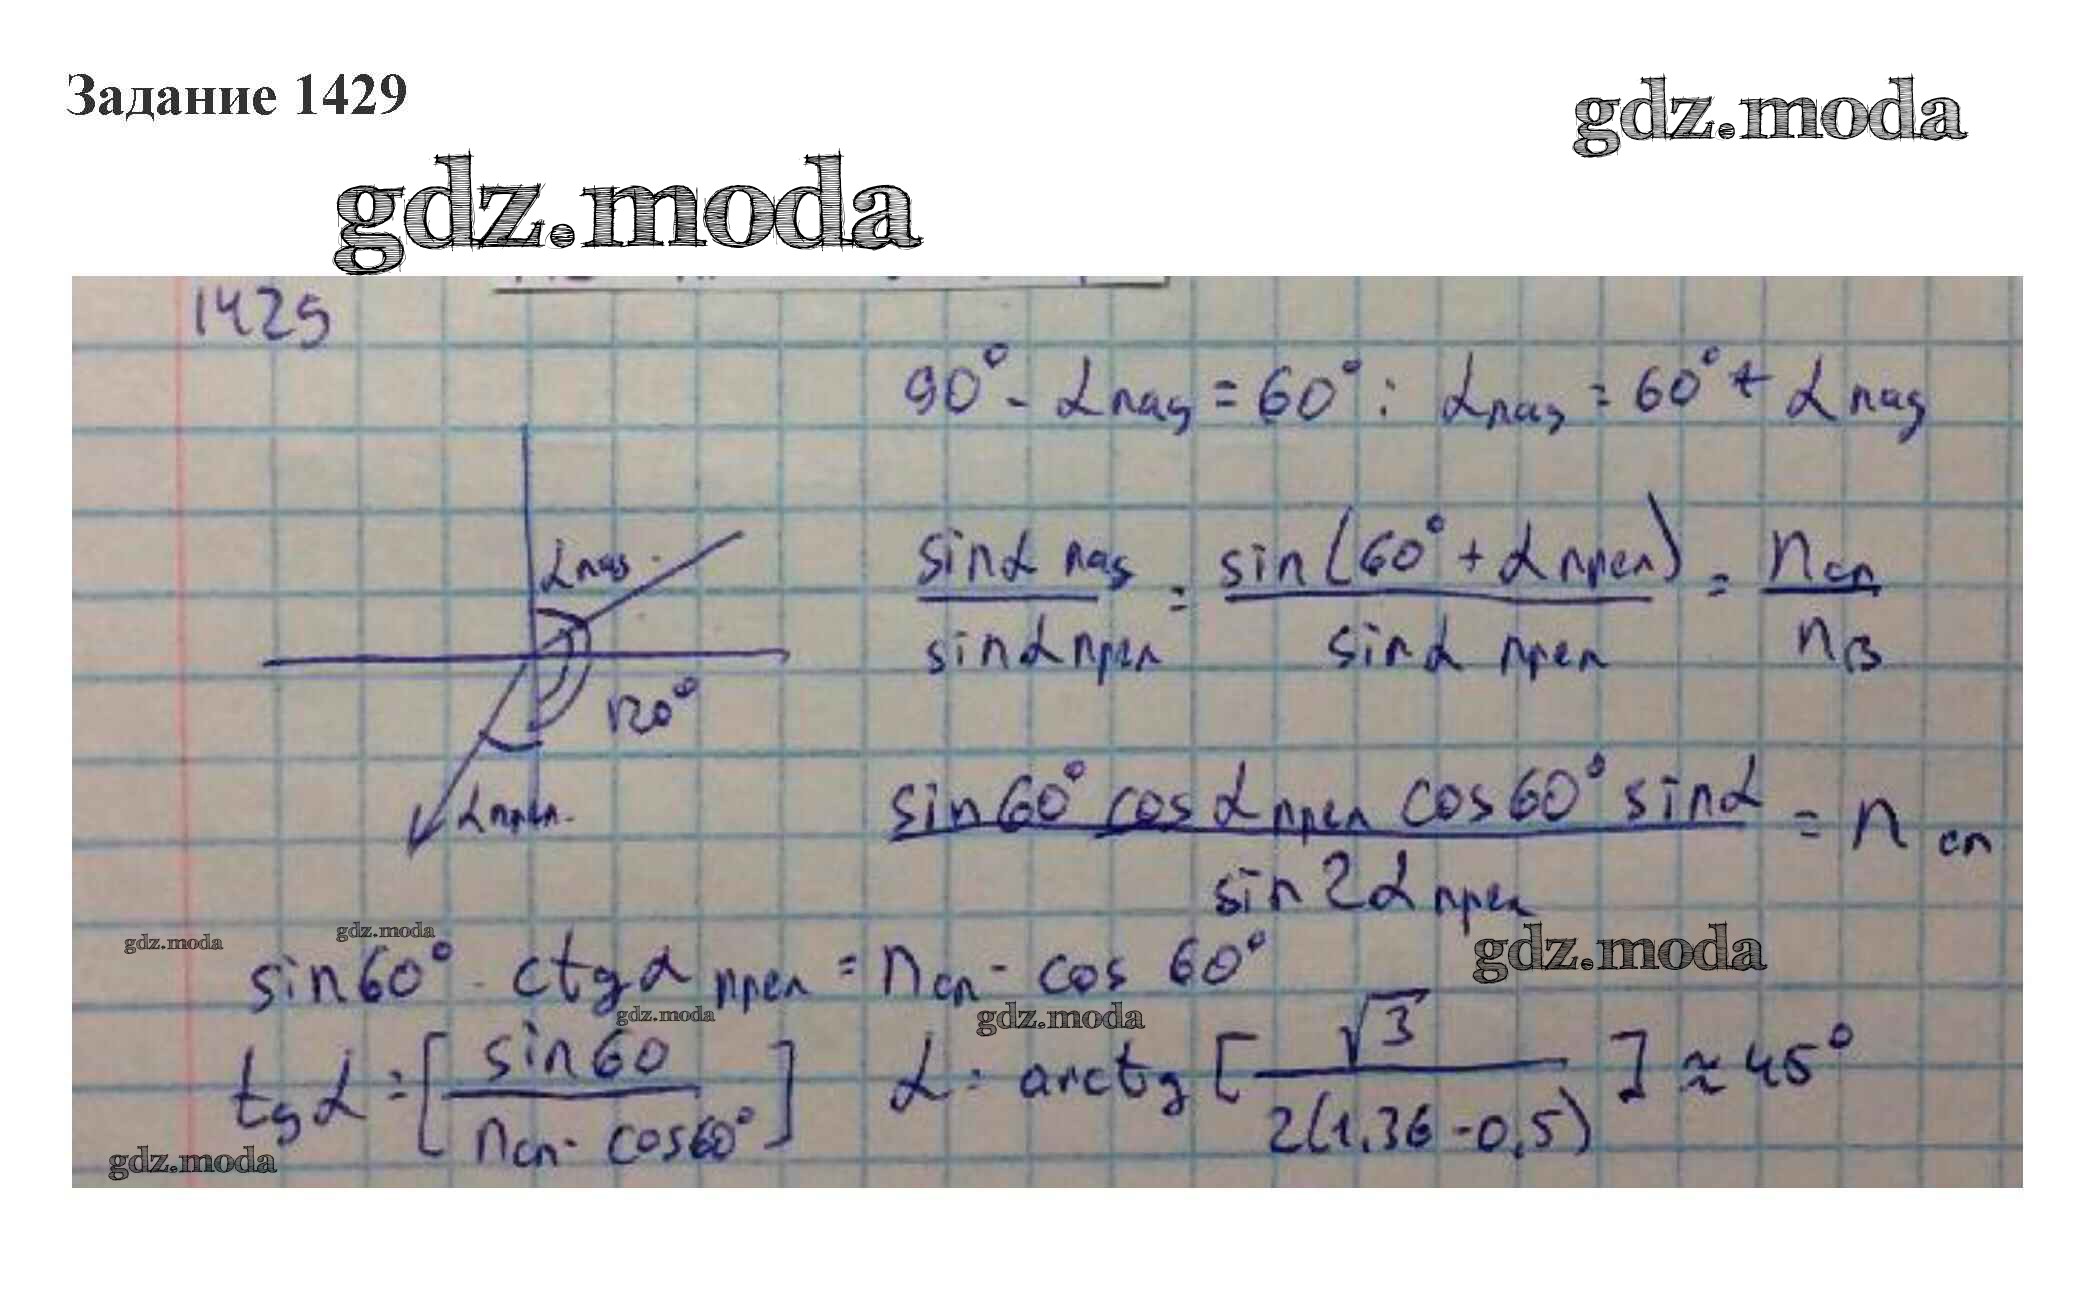 Задание 1429
gdz.moda
gdz.moda
1429
90° - α пад = 60° : α пад = 60° + α пад
α пад.
120°
α прел.
sin α пад / sin α прел = sin (60° + α прел) / sin α прел = n сп / n в
sin 60° cos α прел cos 60° sin α / sin 2 α прел = n сп
gdz.moda
gdz.moda
gdz.moda
sin 60° · ctg α прел = n сп - cos 60°
gdz.moda
gdz.moda
tg α = [ sin 60 / n сп - cos 60° ] α = arctg [ √3 / 2(1,36 - 0,5) ] ≈ 45°
gdz.moda